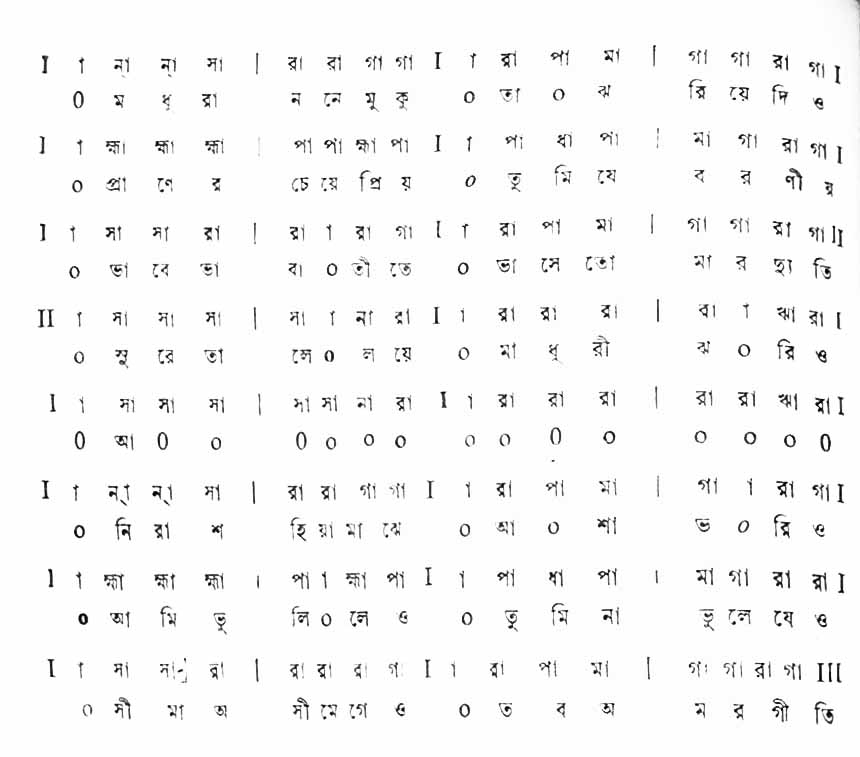 I া ন়া ন়া সা | রা রা গা গা I া রা পা মা | গা গা রা গা I
0 ম ধু রা ন নে মু কু ০ তা ০ ঝ রি য়ে দি ও
I া হ্মা হ্মা হ্মা | পা পা হ্মা পা I া পা ধা পা | মা গা রা গা I
০ প্রা ণে র চে য়ে প্রি য় ০ তু মি যে ব র ণী য়
I া সা সা রা | রা া রা গা I া রা পা মা | গা গা রা গা II
০ ভা বে ভা বা ০ তী তে ০ ভা সে তো মা র ছ্যু তি
II া সা সা সা | সা া না রা I া রা রা রা | রা া ঋা রা I
০ সু রে তা লে ০ ল য়ে ০ মা ধু রী ঝ ০ রি ও
I া সা সা সা | সা সা না রা I া রা রা রা | রা রা ঋা রা I
0 আ 0 ০ 0 ০ ০ ০ ০ ০ 0 ০ ০ ০ ০ 0
I া ন়া ন়া সা | রা রা গা গা I া রা পা মা | গা া রা গা I
০ নি রা শ হি য়া মা ঝে ০ আ ০ শা ভ ০ রি ও
I া হ্মা হ্মা হ্মা | পা া হ্মা পা I া পা ধা পা | মা গা রা রা I
০ আ মি ভু লি ০ লে ও ০ তু মি না ভু লে যে ও
I া সা সা রা | রা রা রা গা I া রা পা মা | গা গা রা গা III
০ সী মা অ সী মে গে ও ০ ত ব অ ম র গী তি